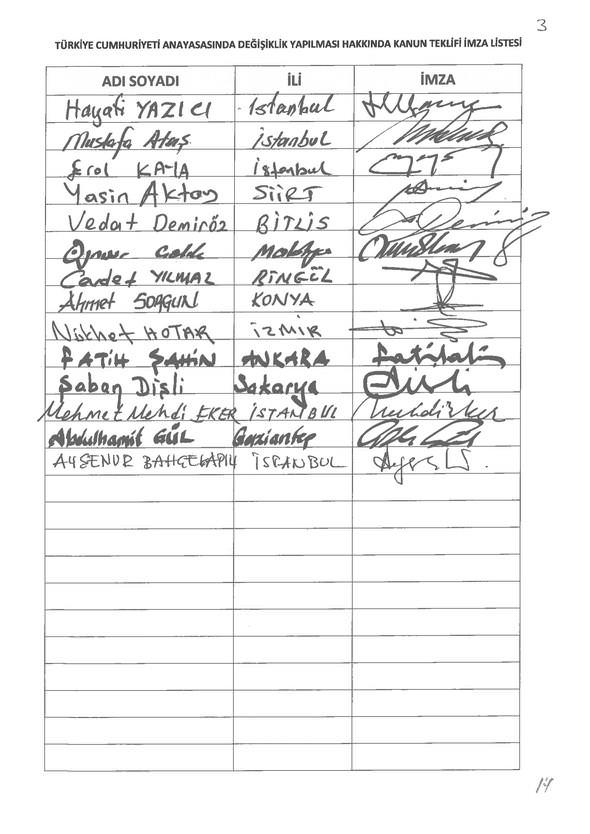 3
TÜRKİYE CUMHURİYETİ ANAYASASINDA DEĞİŞİKLİK YAPILMASI HAKKINDA KANUN TEKLİFİ İMZA LİSTESİ
ADI SOYADI İLİ İMZA
Hayati YAZICI İstanbul
Mustafa Ataş İstanbul
Erol KAYA İstanbul
Yasin Aktay SİİRT
Vedat Demiröz BİTLİS
Öznur Çalık Malatya
Cevdet YILMAZ BİNGÖL
Ahmet SORGUN KONYA
Nükhet HOTAR İZMİR
FATİH ŞAHİN ANKARA
Şaban Dişli Sakarya
Mehmet Mehdi EKER İSTANBUL
Abdulhamit GÜL Gaziantep
AYŞENUR BAHÇEKAPILI İSTANBUL
14